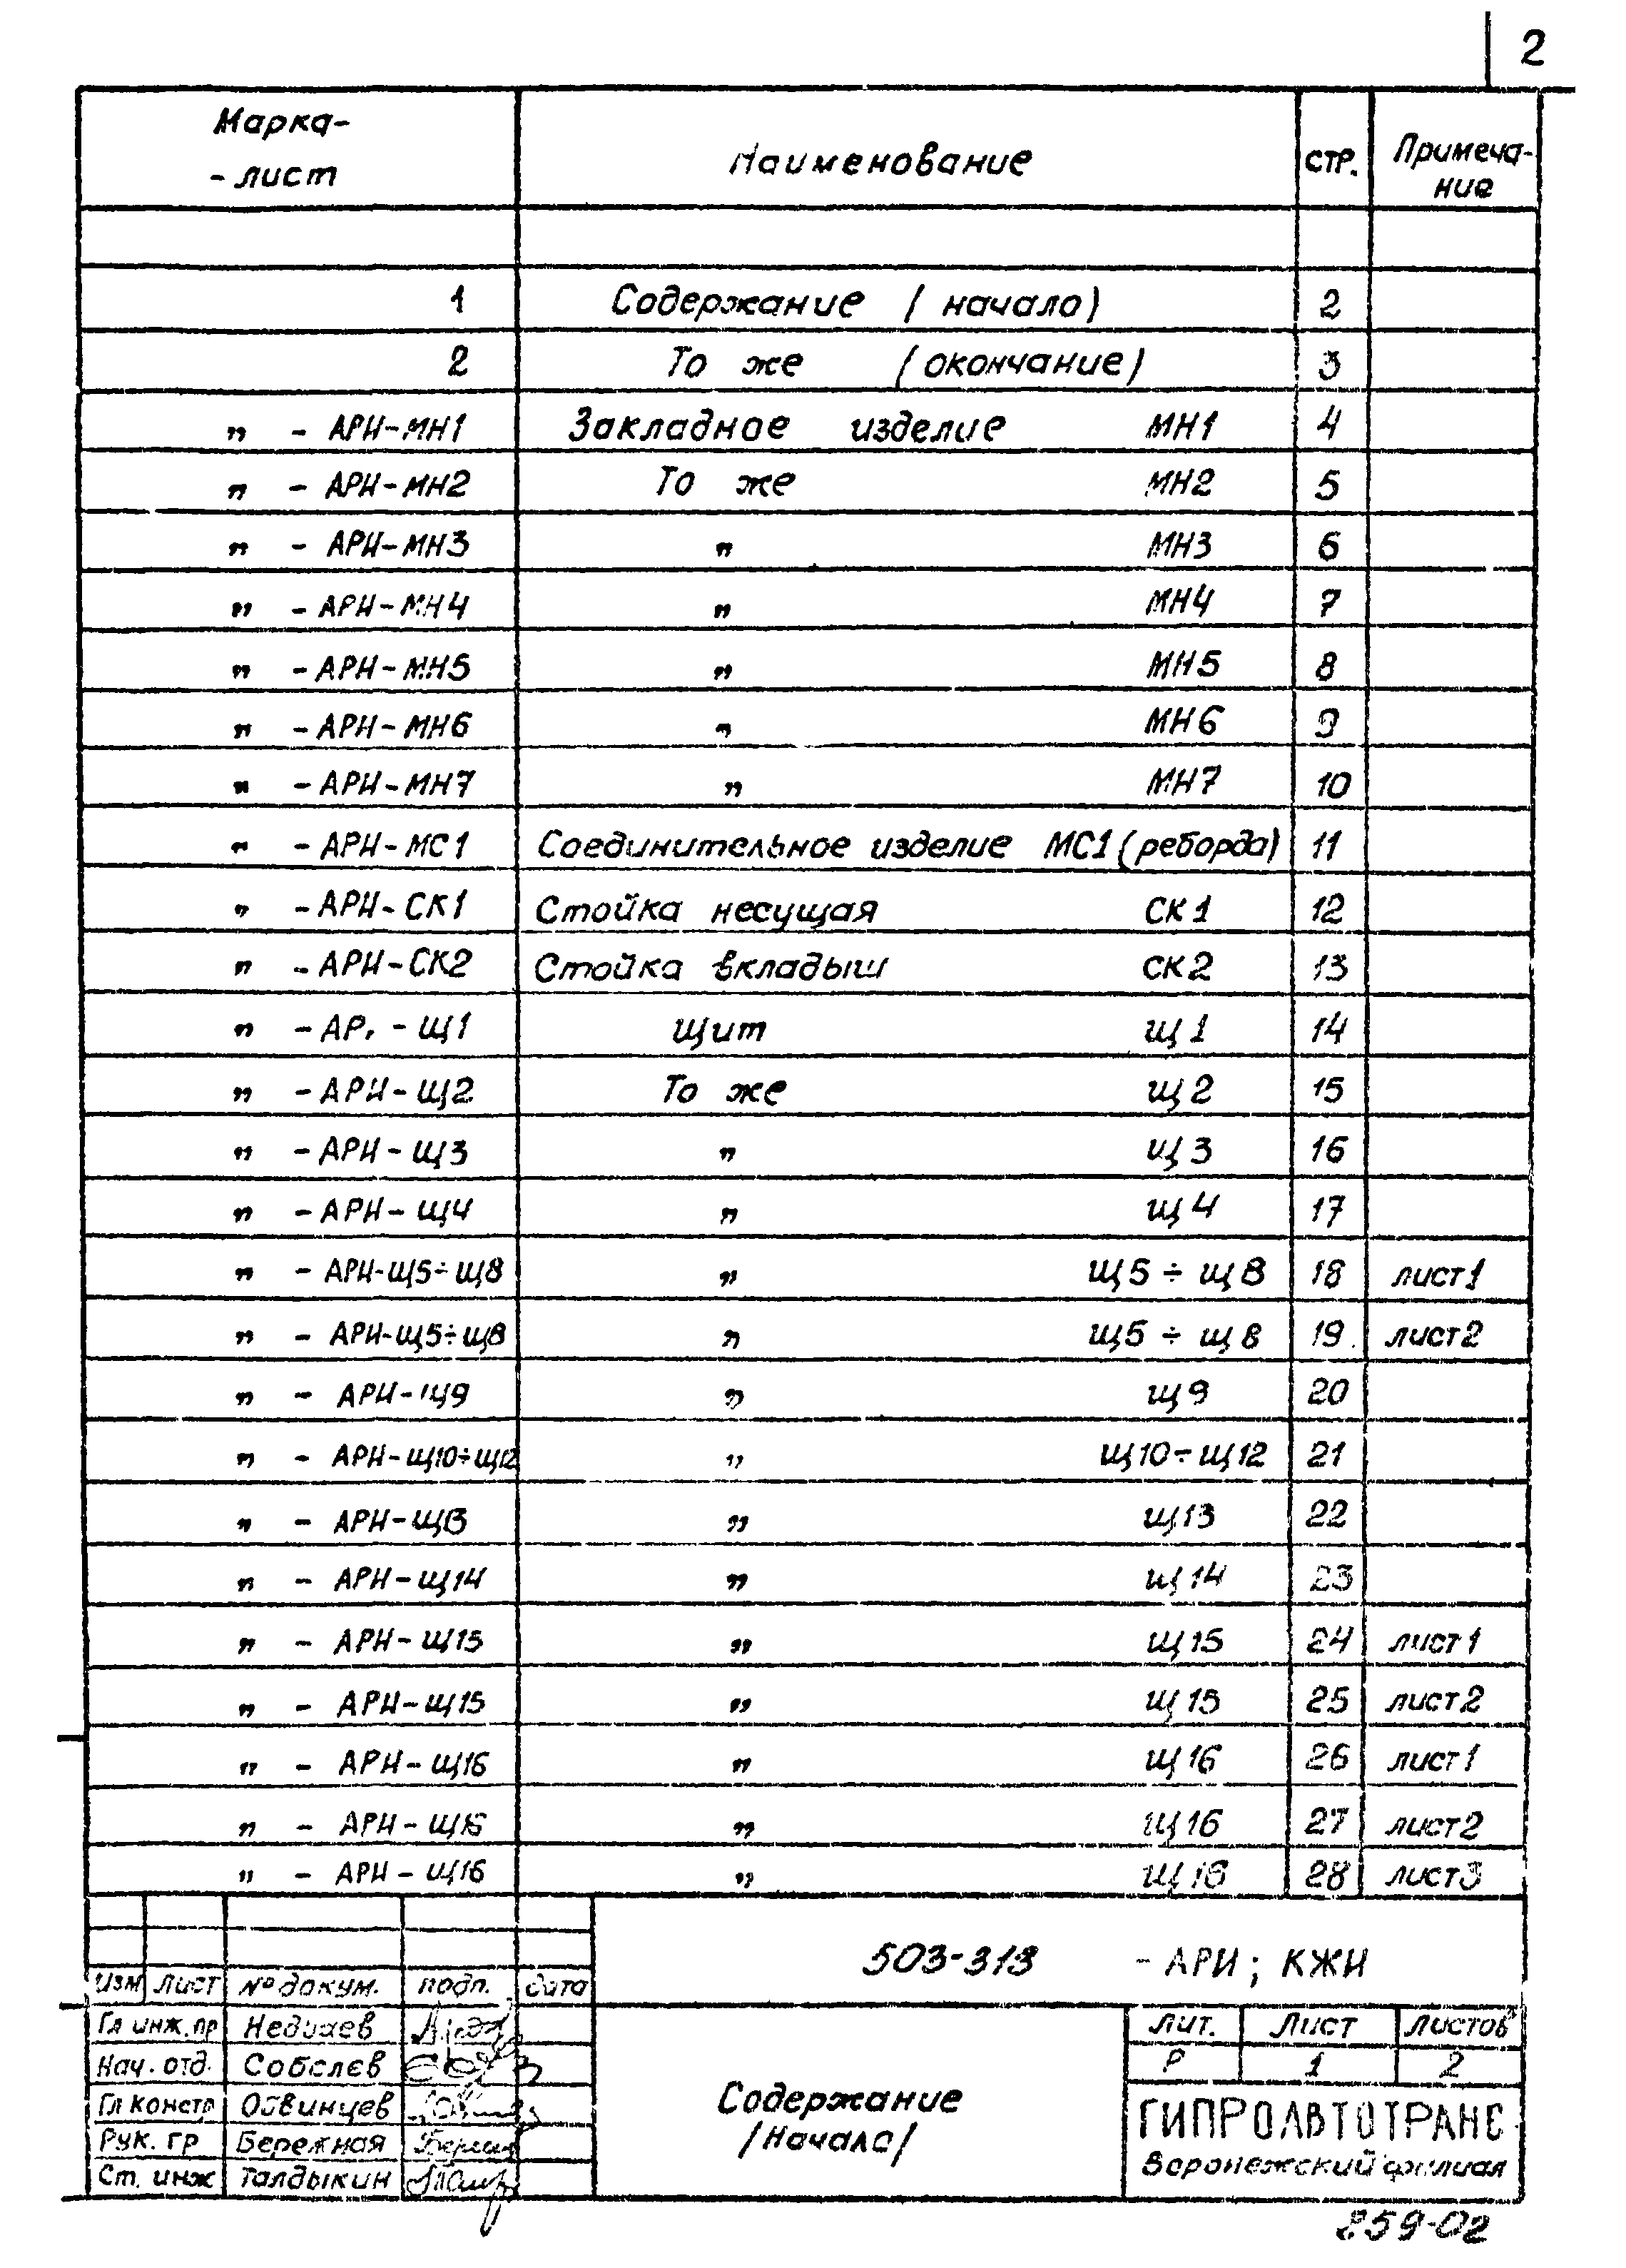 2
Марка- Наименование стр. Примеча-
-лист ние
1 Содержание (начало) 2
2 То же (окончание) 3
„ - АРИ-МН1 Закладное изделие МН1 4
„ - АРИ-МН2 То же МН2 5
„ - АРИ-МН3 „ МН3 6
„ - АРИ-МН4 „ МН4 7
„ - АРИ-МН5 „ МН5 8
„ - АРИ-МН6 „ МН6 9
„ - АРИ-МН7 „ МН7 10
„ - АРИ-МС1 Соединительное изделие МС1 (реборда) 11
„ - АРИ-СК1 Стойка несущая СК1 12
„ - АРИ-СК2 Стойка вкладыш СК2 13
„ - АР. - Щ1 Щит Щ1 14
„ - АРИ-Щ2 То же Щ2 15
„ - АРИ-Щ3 „ Щ3 16
„ - АРИ-Щ4 „ Щ4 17
„ - АРИ-Щ5÷Щ8 „ Щ5÷Щ8 18 лист1
„ - АРИ-Щ5÷Щ8 „ Щ5÷Щ8 19 лист2
„ - АРИ-Щ9 „ Щ9 20
„ - АРИ-Щ10÷Щ12 „ Щ10÷Щ12 21
„ - АРИ-Щ13 „ Щ13 22
„ - АРИ-Щ14 „ Щ14 23
„ - АРИ-Щ15 „ Щ15 24 лист1
„ - АРИ-Щ15 „ Щ15 25 лист2
„ - АРИ-Щ16 „ Щ16 26 лист1
„ - АРИ-Щ16 „ Щ16 27 лист2
„ - АРИ-Щ16 „ Щ16 28 лист3
503-313 - АРИ; КЖИ
Изм Лист № докум. подп. дата
Гл инж.пр
Нач. отд. Соболев
Гл констр Ойвинцев
Рук. гр Бережная
Ст. инж Талдыкин
Содержание
/Начало/
Лит. Лист Листов
Р 1 2
ГИПРОАВТОТРАНС
Воронежский филиал
259-02